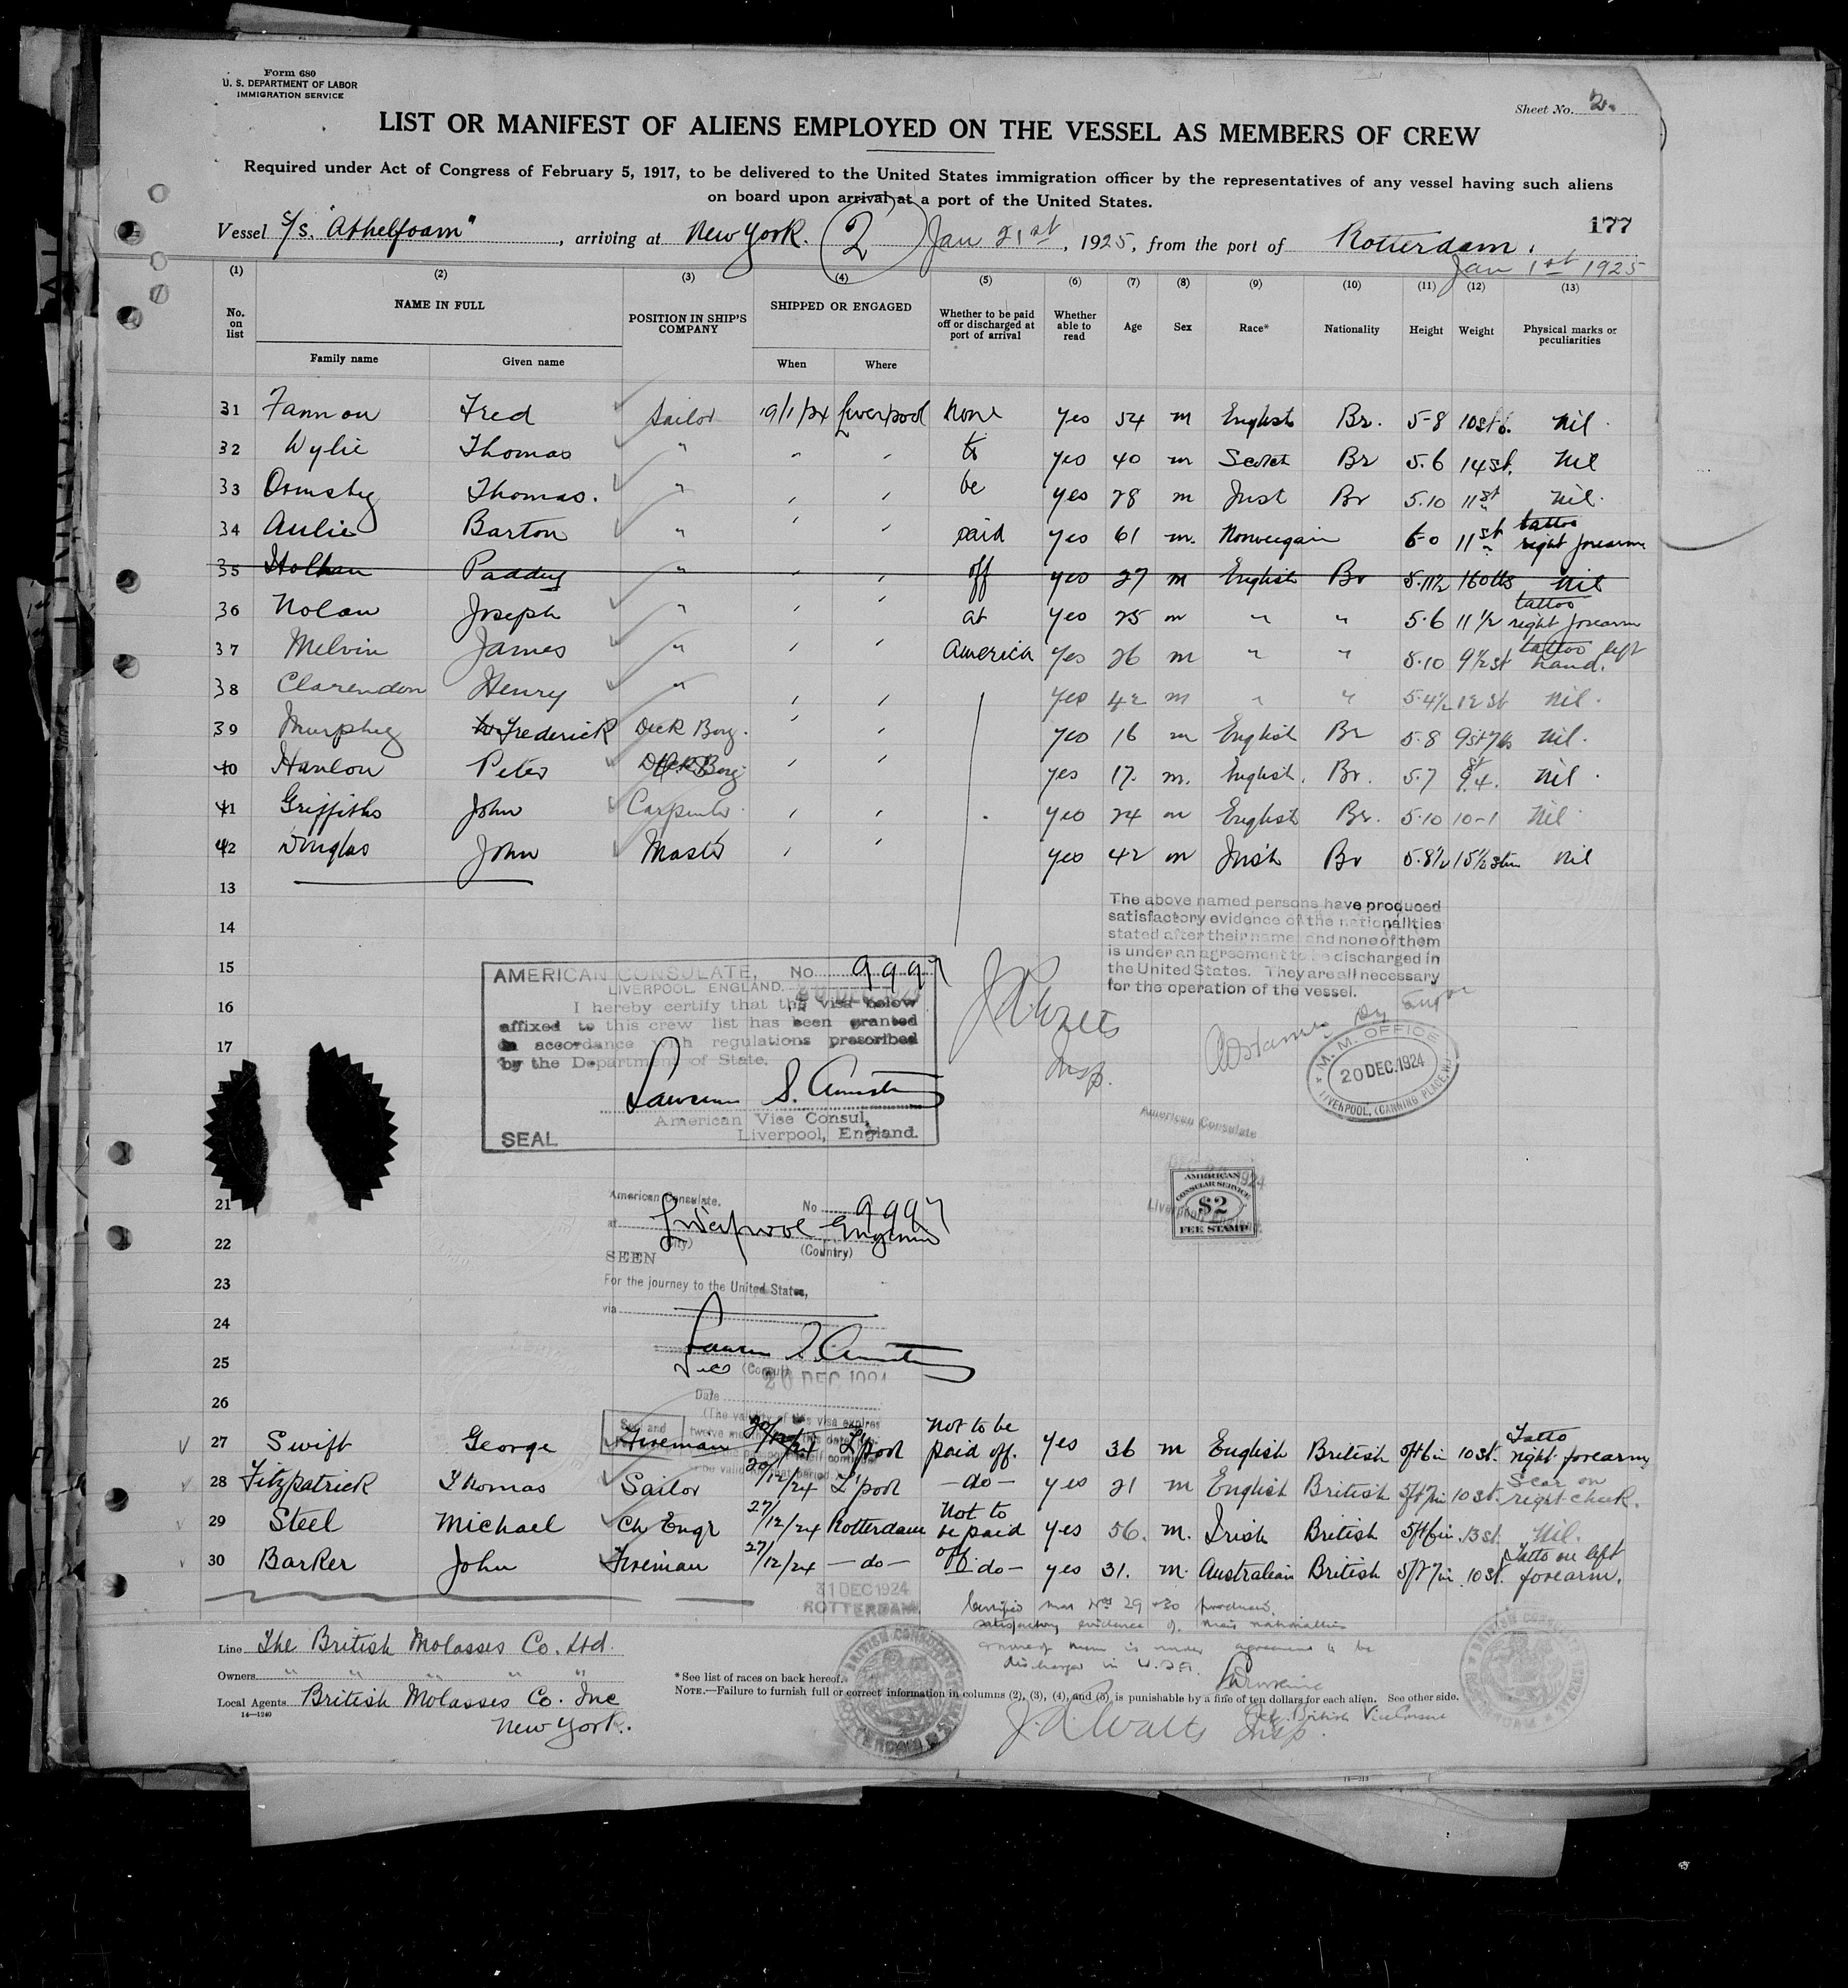 Form 680
U. S. DEPARTMENT OF LABOR
IMMIGRATION SERVICE
Sheet No. 2.
LIST OR MANIFEST OF ALIENS EMPLOYED ON THE VESSEL AS MEMBERS OF CREW
Required under Act of Congress of February 5, 1917, to be delivered to the United States immigration officer by the representatives of any vessel having such aliens
on board upon arrival at a port of the United States.
177
Vessel S/S. "Athelfoam", arriving at New York. (2) Jan 21st, 1925, from the port of Rotterdam.
Jan 1st 1925
(1) (2) (3) (4) (5) (6) (7) (8) (9) (10) (11) (12) (13)
No. on list NAME IN FULL POSITION IN SHIP'S COMPANY SHIPPED OR ENGAGED Whether to be paid off or discharged at port of arrival Whether able to read Age Sex Race* Nationality Height Weight Physical marks or peculiarities
Family name Given name When Where
31 Fannon Fred Sailor Liverpool None yes 54 m English Br. 5-8 nil
32 Wylie Thomas " " " to yes 40 m Scotch Br 5.6 14 st. nil
33 Ormsby Thomas. " " " be yes 28 m Irish Br 5.10 11 st nil.
34 Aulie Barton " " " paid yes 61 m. Norweigain 6-0 11 st tattoo right forearm
35 Paddy " " " off yes 27 m English Br 5.11½ nil
36 Nolan Joseph " " " at yes 25 m " " 5.6 11½ tattoo right forearm
37 Melvin James " " " America yes 26 m " " 5.10 9½ st tattoo left hand.
38 Clarendon Henry " " " yes 42 m " " 5.4½ 12 st nil.
39 Murphy Frederick Deck Boy. " " yes 16 m English Br 5.8 nil.
40 Hanlon Peter Deck Boy " " yes 17. m. English. Br. 5.7 9.4. nil.
41 Griffiths John Carpenter " " yes 24 m English Br. 5.10 10-1 nil
42 Douglas John Master " " yes 42 m Irish Br 5.8½ nil
13
14
15
16
17
21
22
23
24
25
26
The above named persons have produced
satisfactory evidence of the nationalities
stated after their name and none of them
is under an agreement to be discharged in
the United States. They are all necessary
for the operation of the vessel.
J.A. Watts
Insp.
M. M. OFFICE
20 DEC. 1924
LIVERPOOL, (CANNING PLACE, W.)
AMERICAN CONSULATE, No 9997
LIVERPOOL ENGLAND.
I hereby certify that the visa below
affixed to this crew list has been granted
in accordance with regulations prescribed
by the Department of State.
American Vice Consul,
SEAL Liverpool, England.
American Consulate
AMERICAN
CONSULAR SERVICE
$2
FEE STAMP
American Consulate. No 9997
at Liverpool England
(City) (Country)
SEEN
For the journey to the United States,
via
Vice (Consul)
20 DEC 1924
Date
27 Swift George Fireman 20/12/24 L'pool Not to be paid off. yes 36 m English British 5ft6in 10 st. Tatto right forearm
28 Fitzpatrick Thomas Sailor 20/12/24 L'pool -do- yes 21 m English British 5ft7in 10 st. Scar on right cheek.
29 Steel Michael Ch Engr 27/12/24 Rotterdam Not to be paid off. yes 56. m. Irish British 5ft6in. 13 st. Nil.
30 Barker John Fireman 27/12/24 -do- -do- yes 31. m. Australian British 5ft7in. 10 st. Tatto on left forearm.
31 DEC 1924
ROTTERDAM.
Certified men Nos 29 & 30 produced
satisfactory evidence of their nationalities
& none of them is under agreement to be
discharged in U.S.A.
Act. British Vice Consul
Line The British Molasses Co. Ltd.
Owners " " " " "
Local Agents British Molasses Co. Inc
New York.
14—1240
*See list of races on back hereof.
NOTE.—Failure to furnish full or correct information in columns (2), (3), (4), and (5) is punishable by a fine of ten dollars for each alien. See other side.
J.A. Watts Insp.